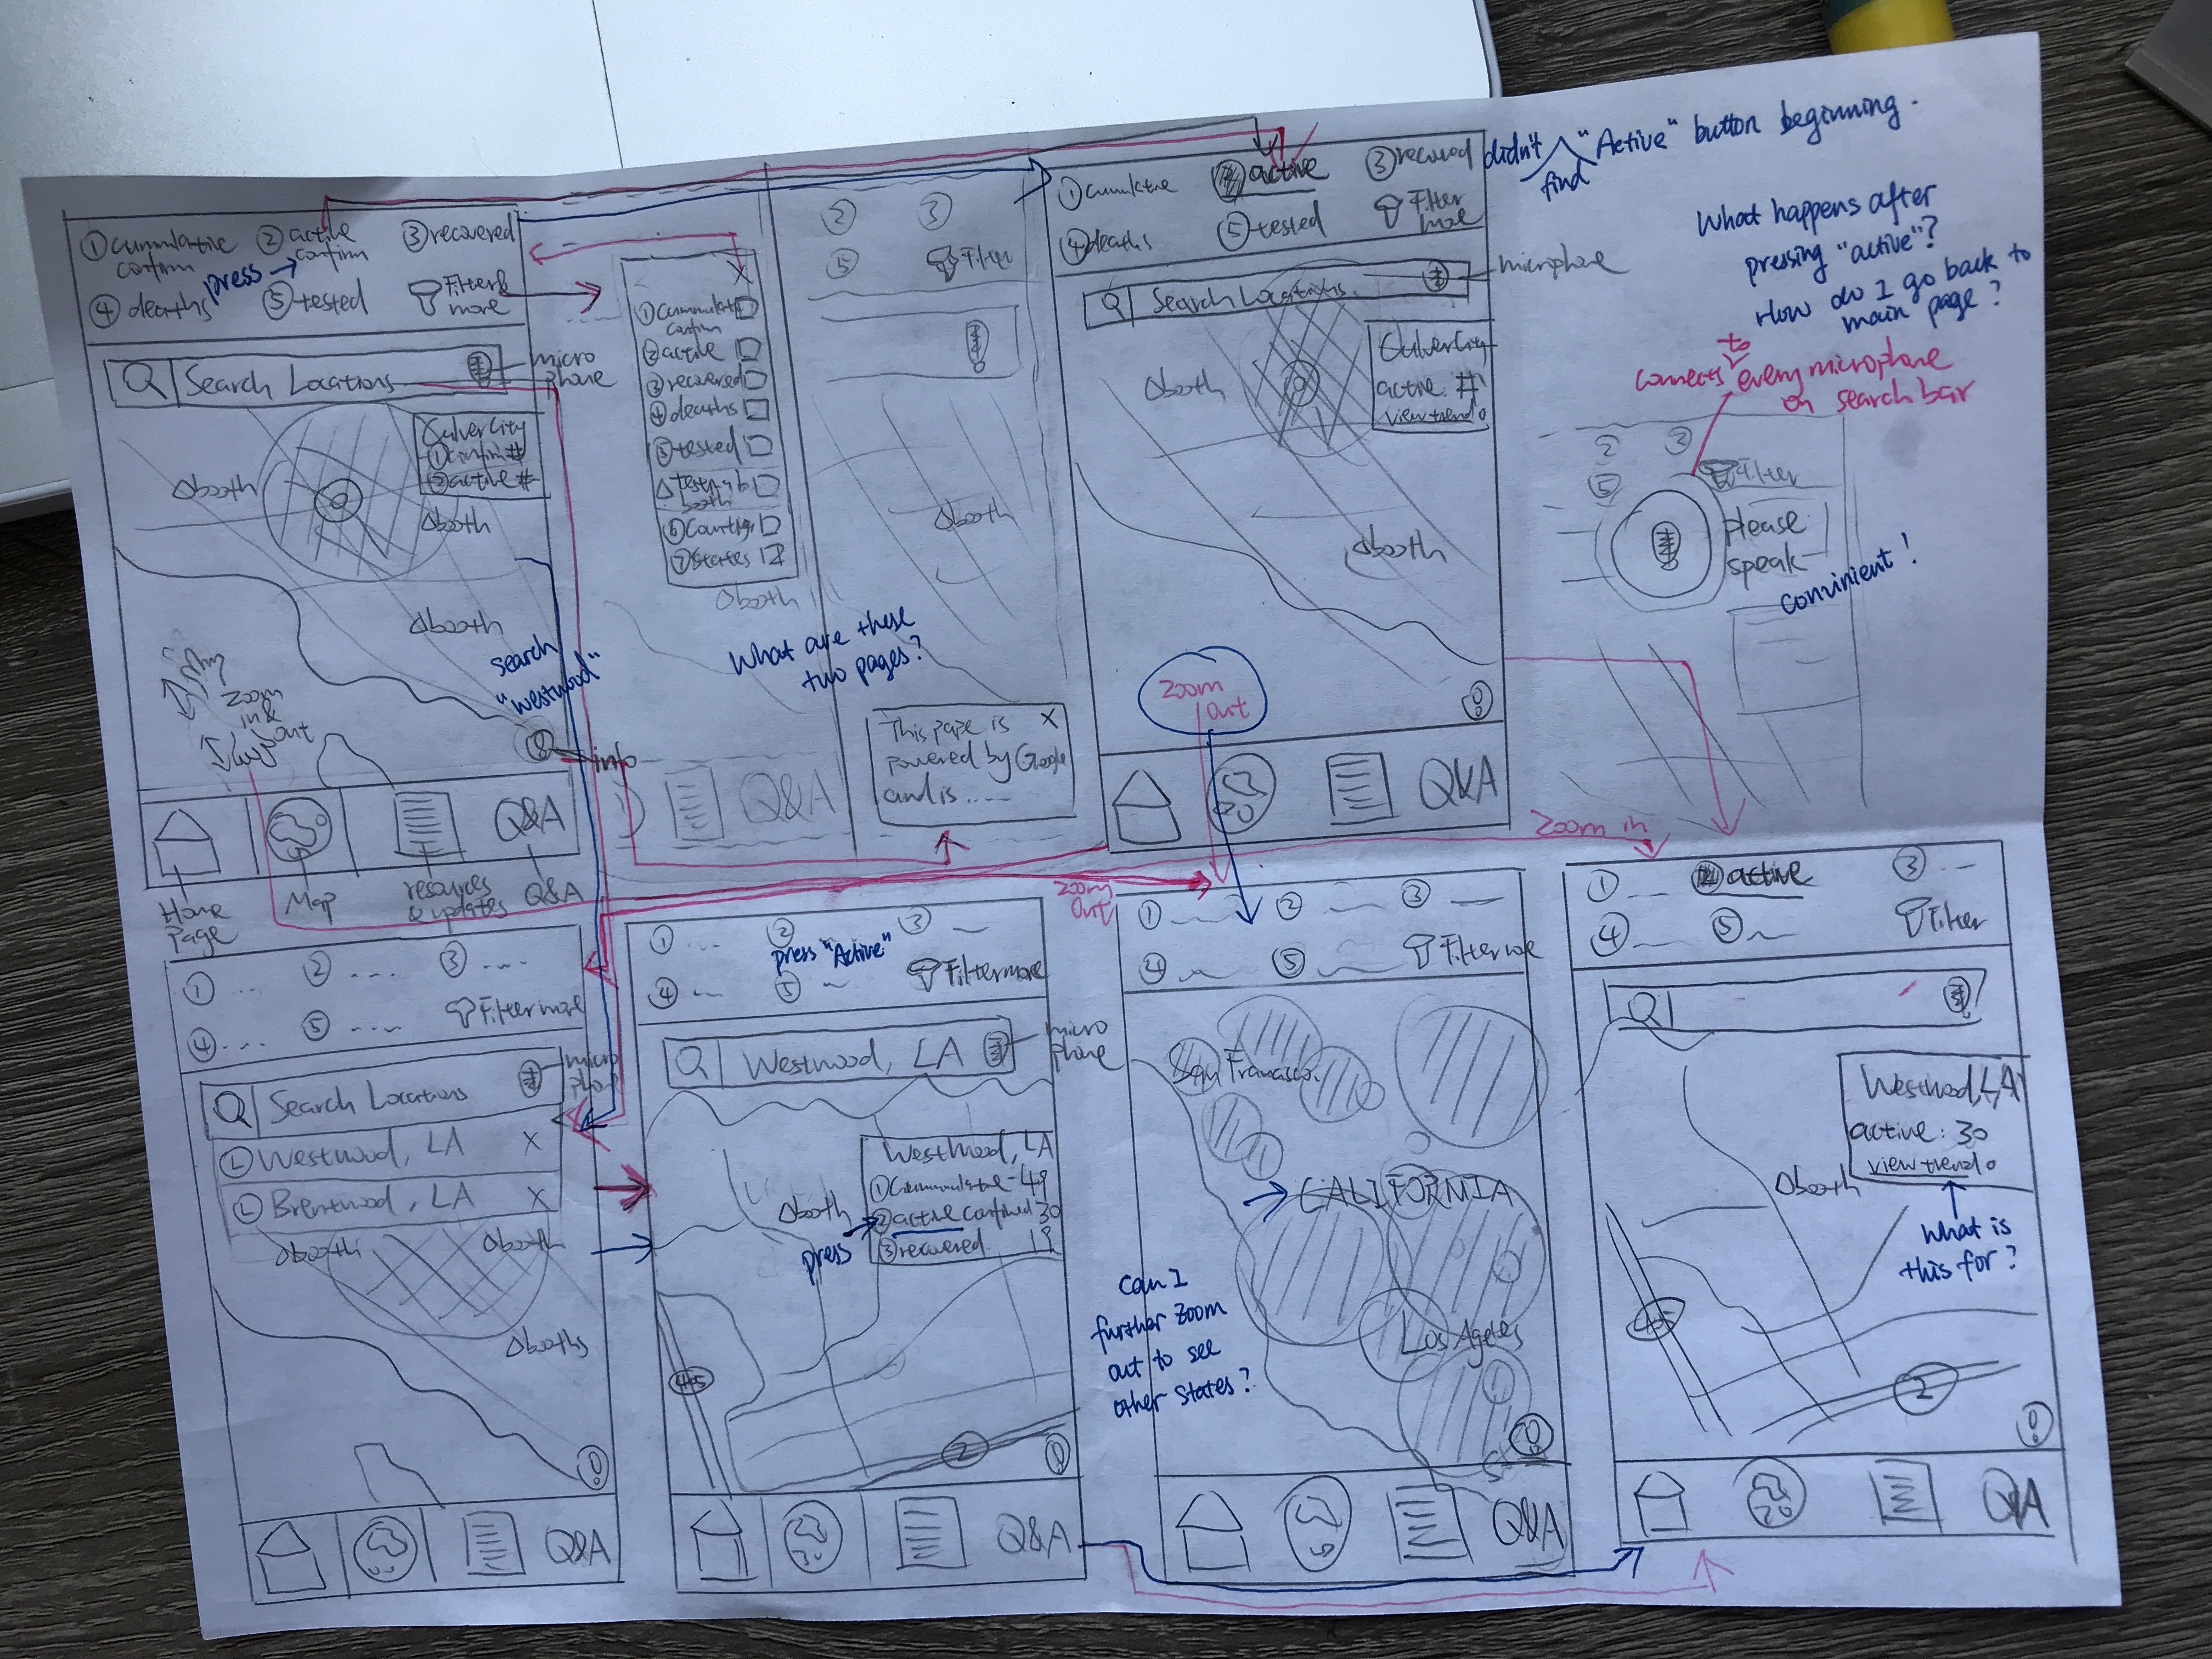 ① cummulative confirm
② active confirm
③ recovered
press →
④ deaths
⑤ tested
Filter & more
Search Locations
micro phone
Culver City
① confirm #
② active #
△ booth
△ booth
△ booth
zoom in & out
search "westwood"
info
Q&A
Home Page
Map
resources & updates
Q&A
X
① Cummulative confirm
② active
③ recovered
④ deaths
⑤ tested
△ testing booth
⑦ States
△ booth
What are these two pages?
Q&A
②
③
⑤
Filter
△ booth
This page is
powered by Google
and is ....
X
① cumulative
② active
③ recovered
④ deaths
⑤ tested
Filter more
Search Locations
microphone
Culver City
active: #
view trend
△ booth
△ booth
Zoom out
Q&A
didn't find "Active" button beginning.
What happens after
pressing "active"?
How do I go back to
main page?
connects to every microphone
on search bar
②
③
⑤
Filter
please
speak
convinient!
Zoom in
Zoom out
① ...
② ...
③ ...
④ ...
⑤ ...
Filter more
Search Locations
micro phone
Westwood, LA X
Brentwood, LA X
△ booth
△ booth
△ booths
Q&A
① ...
②
③
press "Active"
④
⑤
Filter more
Westwood, LA
micro phone
Westwood, LA
① Cummulative - 49
② active confirmed 30
③ recovered 19
△ booth
press
405
2
Q&A
①
②
③
④
⑤
Filter more
San Francisco
CALIFORNIA
Los Ageles
can I
further zoom
out to see
other states?
Q&A
① ...
② active
③ ...
④
⑤
Filter
Westwood, LA
active: 30
view trend
△ booth
What is
this for?
405
2
Q&A